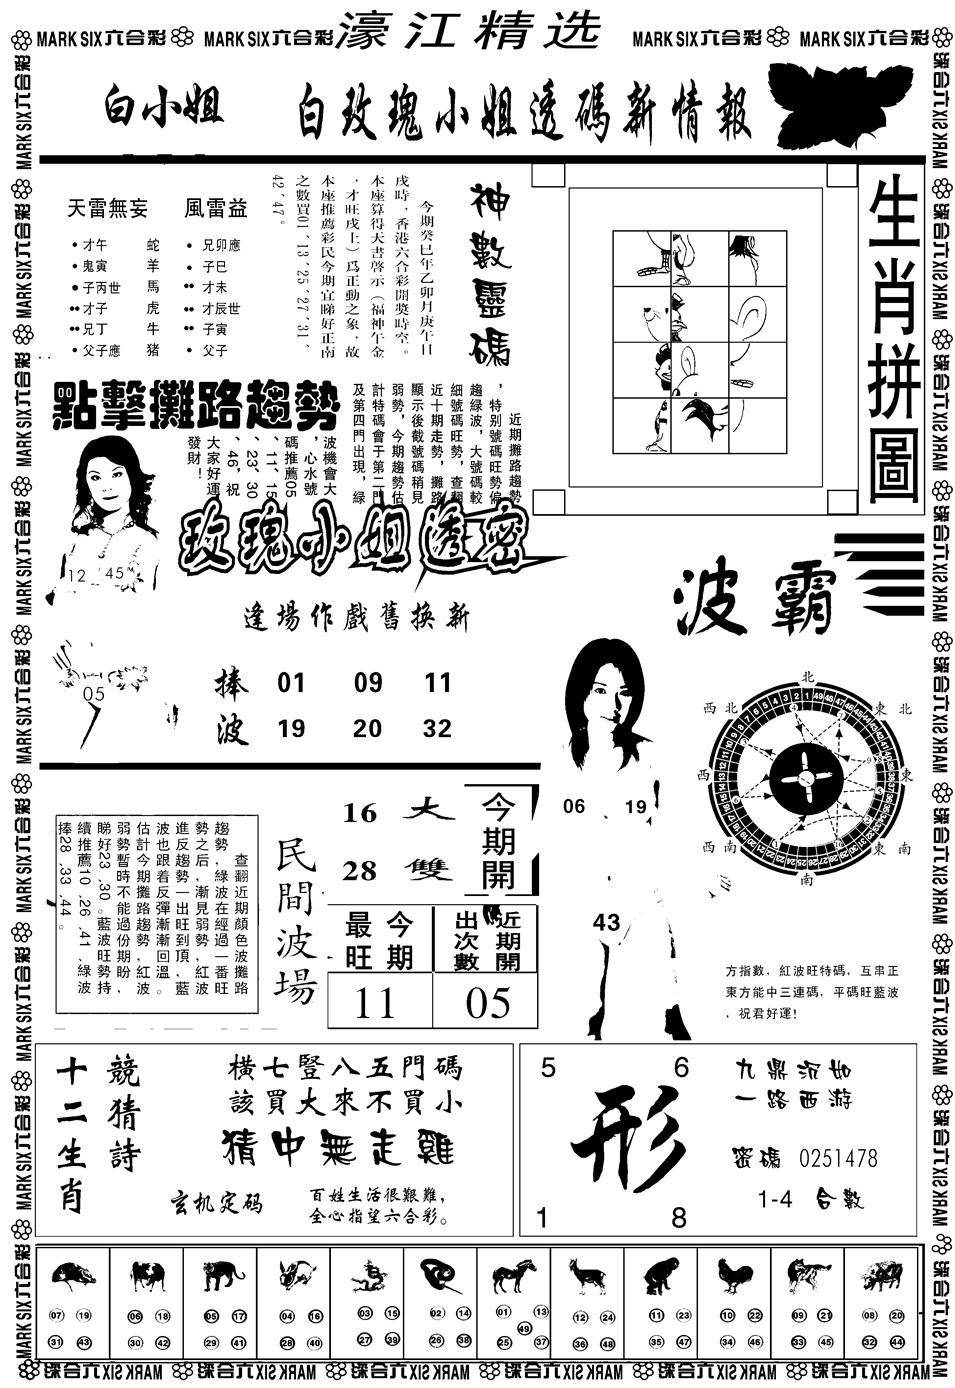 濠江精选
MARK SIX六合彩 MARK SIX六合彩 MARK SIX六合彩 MARK SIX六合彩
白小姐 白玫瑰小姐透碼新情報
天雷無妄 風雷益
才午 蛇 兄卯應
鬼寅 羊 子巳
子丙世 馬 才未
才子 虎 才辰世
兄丁 牛 子寅
父子應 豬 父子
神數靈碼
今期癸巳年乙卯月庚午日
戌時，香港六合彩開獎時空。
本座算得天書啓示（福神午金
，才旺戌上）爲正動之象，故
本座推薦彩民今期宜睇好正南
之數買01、13、25、27、31、
42、47。
生肖拼圖
點擊攤路趨勢
近期攤路趨勢
，特别號碼旺勢偏
趨綠波，大號碼較
細號碼旺勢，查翻
近十期走勢，攤路
顯示後截號碼稍見
弱勢，今期趨勢估
計特碼會于第二門
及第四門出現，綠
波機會大
，心水號
碼推薦05
、11、15
、23、30
、46，祝
大家好運
發財！
12 45
05
玫瑰小姐透密
逢場作戲舊换新
捧 01 09 11
波 19 20 32
波霸
06 19
43
北
東北
東
東南
南
西南
西
西北
方指數，紅波旺特碼，互串正
東方能中三連碼，平碼旺藍波
，祝君好運！
查翻近期顔色波攤路
趨勢，綠波在經過一番旺
勢之后，漸見弱勢，紅波
進反趨勢一出旺到頂，藍
波也跟着反彈漸漸回溫。
估計今期攤路趨勢，紅波
弱勢暫時不能過份期盼，
睇好23、30。藍波旺勢持
續推薦10、26、41、綠波
捧28、33、44。
民間波場
16 大
28 雙
今期開
今期最旺
近期開出次數
11
05
競猜詩
十二生肖
橫七豎八五門碼
該買大來不買小
猜中無走雞
玄机定码
百姓生活很艱難，
全心指望六合彩。
5 6
形
1 8
九鼎沉如
一路西游
密碼 0251478
1-4 合數
07 19 06 18 05 17 04 16 03 15 02 14 01 13 12 24 11 23 10 22 09 21 08 20
49
31 43 30 42 29 41 28 40 27 39 26 38 25 37 36 48 35 47 34 46 33 45 32 44
MARK SIX六合彩 MARK SIX六合彩 MARK SIX六合彩 MARK SIX六合彩 MARK SIX六合彩 MARK SIX六合彩